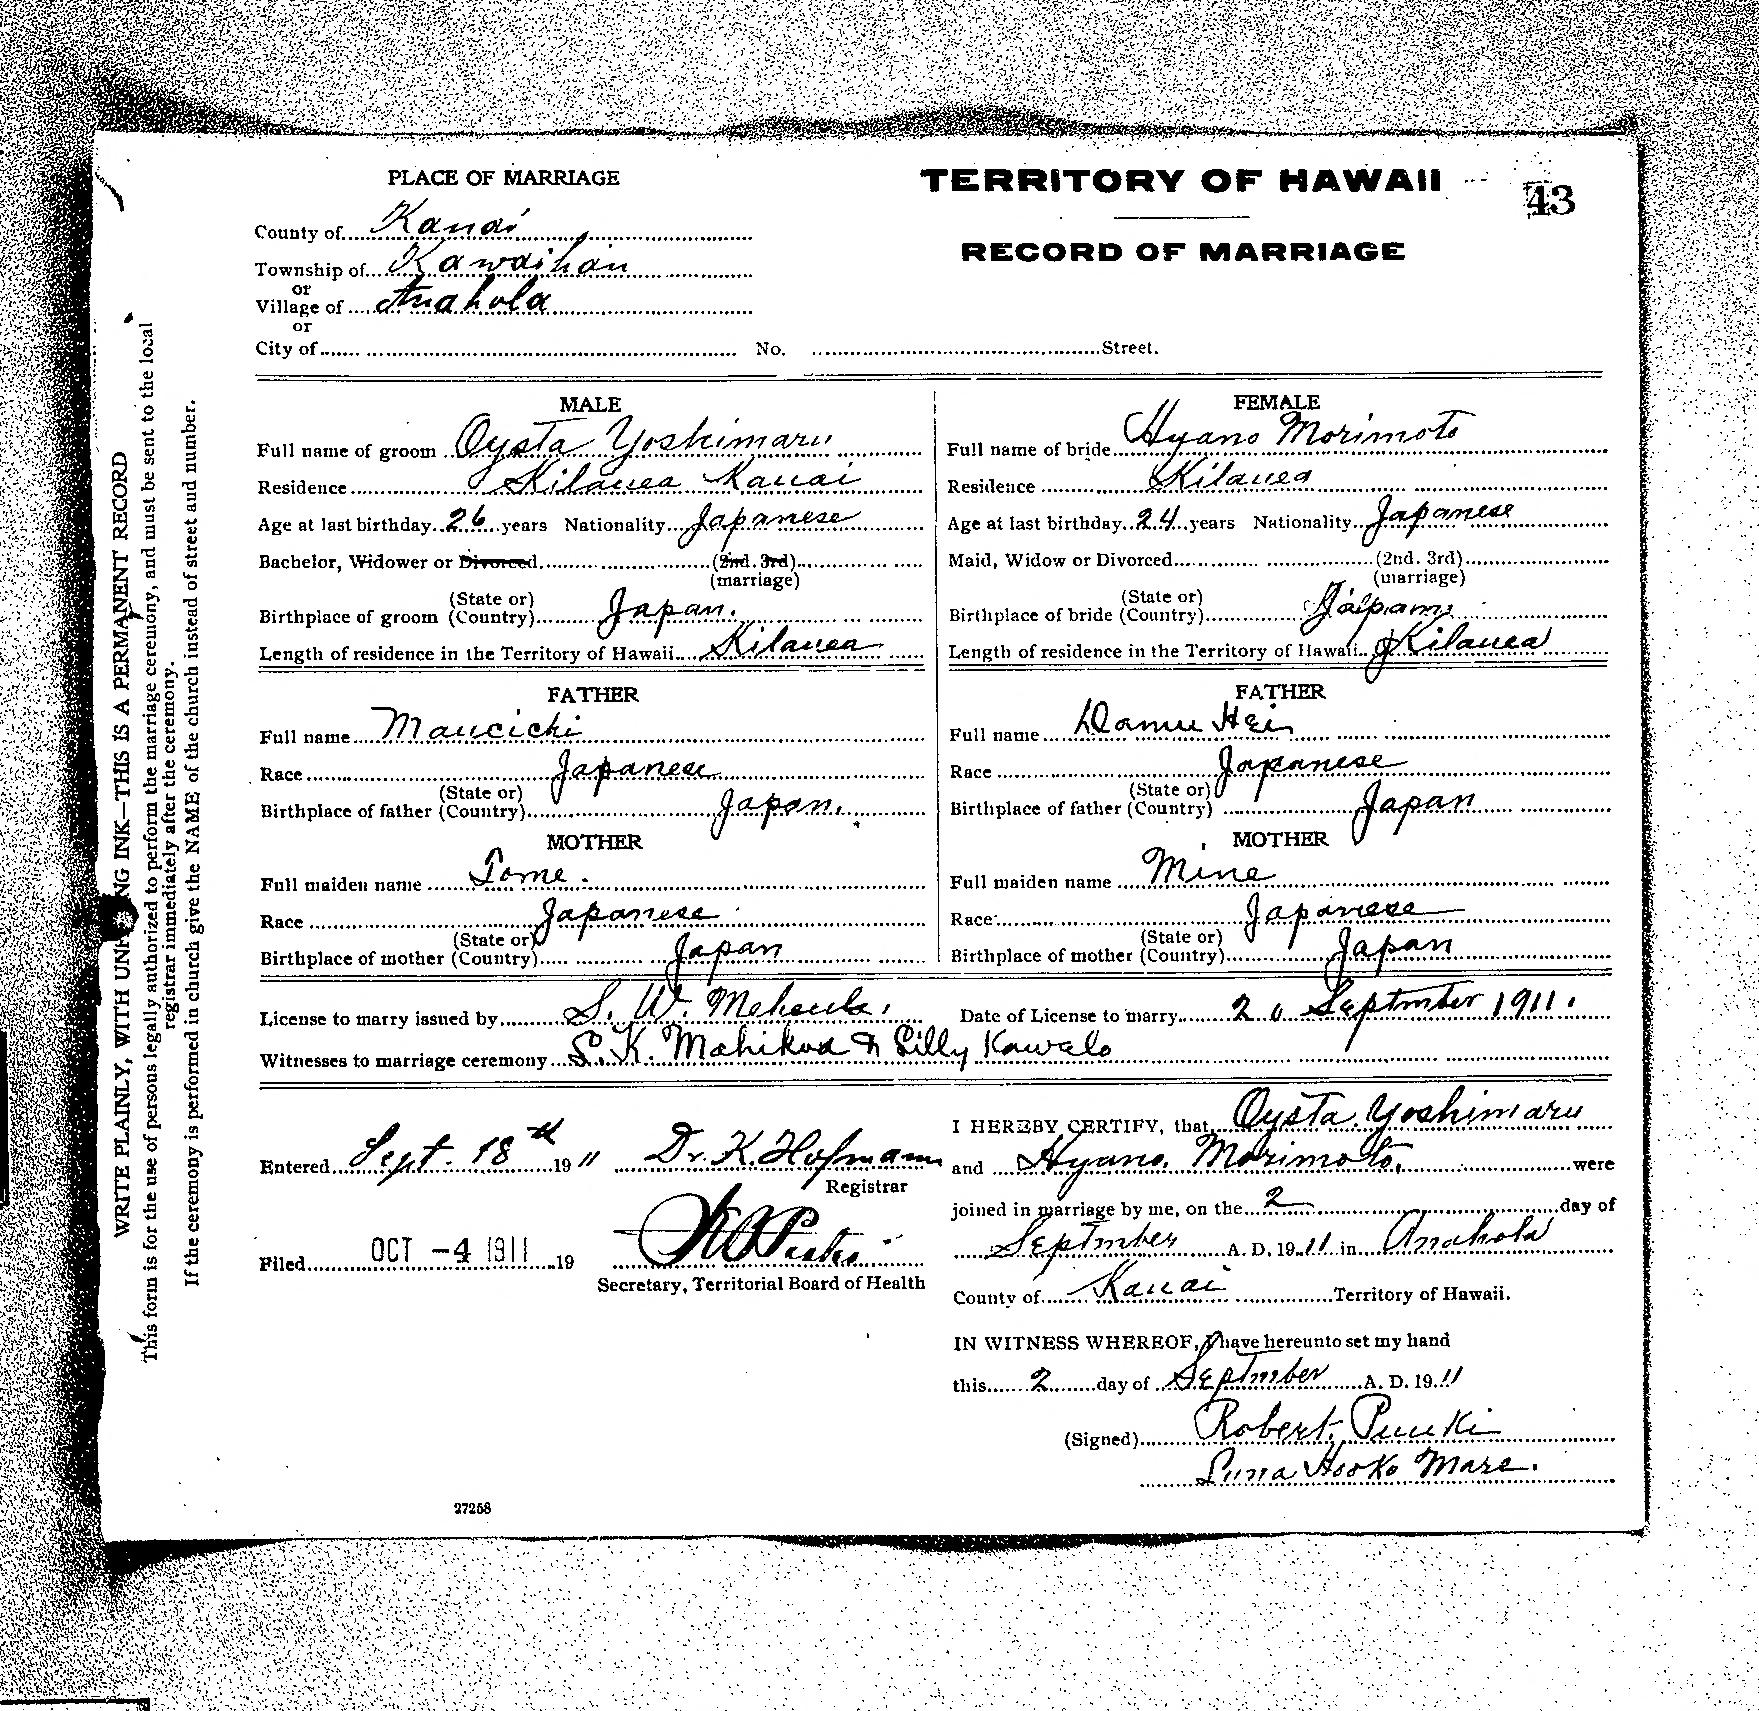 PLACE OF MARRIAGE
TERRITORY OF HAWAII
43
County of Kauai
RECORD OF MARRIAGE
Township of Kawaihau
or
Village of Anahola
or
City of No. Street.
WRITE PLAINLY, WITH UNF NG INK—THIS IS A PERMANENT RECORD
This form is for the use of persons legally authorized to perform the marriage ceremony, and must be sent to the local
registrar immediately after the ceremony.
If the ceremony is performed in church give the NAME of the church instead of street and number.
MALE
Full name of groom Oysta Yoshimaru
Residence Kilauea Kauai
Age at last birthday 26 years Nationality Japanese
Bachelor, Widower or Divorced (2nd. 3rd)
(marriage)
(State or)
Birthplace of groom (Country) Japan.
Length of residence in the Territory of Hawaii Kilauea
FATHER
Full name Maucichi
Race Japanese
(State or)
Birthplace of father (Country) Japan.
MOTHER
Full maiden name Tome.
Race Japanese
(State or)
Birthplace of mother (Country) Japan
FEMALE
Full name of bride Hyano Morimoto
Residence Kilauea
Age at last birthday 24 years Nationality Japanese
Maid, Widow or Divorced (2nd. 3rd)
(marriage)
(State or)
Birthplace of bride (Country) Japan
Length of residence in the Territory of Hawaii Kilauea
FATHER
Full name Hei
Race Japanese
(State or)
Birthplace of father (Country) Japan
MOTHER
Full maiden name Mine
Race Japanese
(State or)
Birthplace of mother (Country) Japan
License to marry issued by S. W. Meheula. Date of License to marry 2 September 1911.
Witnesses to marriage ceremony S. K. Mahikoa & Lilly Kawelo
Entered Sept. 18th 1911 Dr. K. Hofmann
Registrar
Filed OCT -4 1911 19
Secretary, Territorial Board of Health
I HEREBY CERTIFY, that Oysta Yoshimaru
and Hyano Morimoto, were
joined in marriage by me, on the 2 day of
September A. D. 1911 in Anahola
County of Kauai Territory of Hawaii.
IN WITNESS WHEREOF, I have hereunto set my hand
this 2 day of September A. D. 1911
(Signed) Robert Puuki
Luna Hooko Mare.
27258